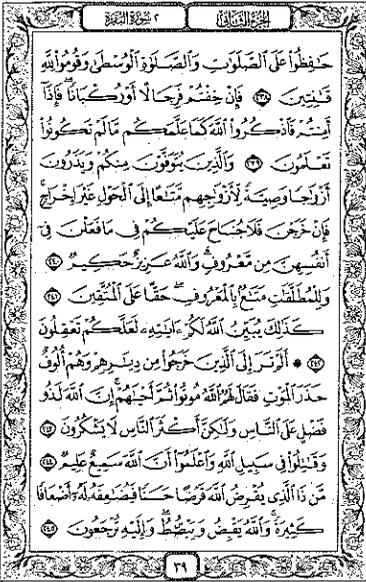 الجزء الثاني
٢ سورة البقرة
حَٰفِظُوا۟ عَلَى ٱلصَّلَوَٰتِ وَٱلصَّلَوٰةِ ٱلْوُسْطَىٰ وَقُومُوا۟ لِلَّهِ
قَٰنِتِينَ ٢٣٨ فَإِنْ خِفْتُمْ فَرِجَالًا أَوْ رُكْبَانًا ۖ فَإِذَآ
أَمِنتُمْ فَٱذْكُرُوا۟ ٱللَّهَ كَمَا عَلَّمَكُم مَّا لَمْ تَكُونُوا۟
تَعْلَمُونَ ٢٣٩ وَٱلَّذِينَ يُتَوَفَّوْنَ مِنكُمْ وَيَذَرُونَ
أَزْوَٰجًا وَصِيَّةً لِّأَزْوَٰجِهِم مَّتَٰعًا إِلَى ٱلْحَوْلِ غَيْرَ إِخْرَاجٍ ۚ
فَإِنْ خَرَجْنَ فَلَا جُنَاحَ عَلَيْكُمْ فِى مَا فَعَلْنَ فِىٓ
أَنفُسِهِنَّ مِن مَّعْرُوفٍ ۗ وَٱللَّهُ عَزِيزٌ حَكِيمٌ ٢٤٠
وَلِلْمُطَلَّقَٰتِ مَتَٰعٌۢ بِٱلْمَعْرُوفِ ۖ حَقًّا عَلَى ٱلْمُتَّقِينَ ٢٤١
كَذَٰلِكَ يُبَيِّنُ ٱللَّهُ لَكُمْ ءَايَٰتِهِۦ لَعَلَّكُمْ تَعْقِلُونَ
٢٤٢ ۞ أَلَمْ تَرَ إِلَى ٱلَّذِينَ خَرَجُوا۟ مِن دِيَٰرِهِمْ وَهُمْ أُلُوفٌ
حَذَرَ ٱلْمَوْتِ فَقَالَ لَهُمُ ٱللَّهُ مُوتُوا۟ ثُمَّ أَحْيَٰهُمْ ۚ إِنَّ ٱللَّهَ لَذُو
فَضْلٍ عَلَى ٱلنَّاسِ وَلَٰكِنَّ أَكْثَرَ ٱلنَّاسِ لَا يَشْكُرُونَ ٢٤٣
وَقَٰتِلُوا۟ فِى سَبِيلِ ٱللَّهِ وَٱعْلَمُوٓا۟ أَنَّ ٱللَّهَ سَمِيعٌ عَلِيمٌ ٢٤٤
مَّن ذَا ٱلَّذِى يُقْرِضُ ٱللَّهَ قَرْضًا حَسَنًا فَيُضَٰعِفَهُۥ لَهُۥٓ أَضْعَافًا
كَثِيرَةً ۚ وَٱللَّهُ يَقْبِضُ وَيَبْصُۜطُ وَإِلَيْهِ تُرْجَعُونَ ٢٤٥
٣٩